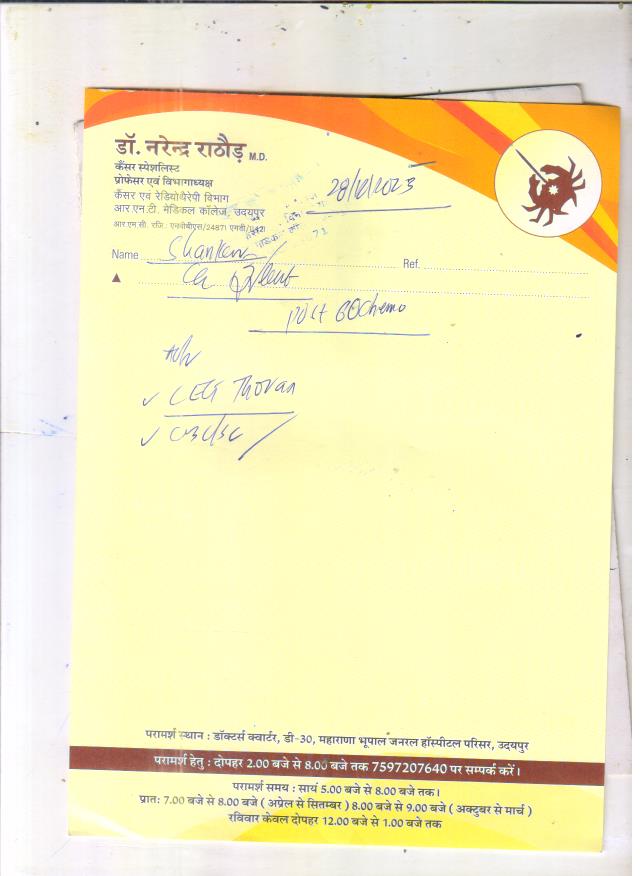 डॉ. नरेन्द्र राठौड़ M.D.
कैंसर स्पेशलिस्ट
प्रोफेसर एवं विभागाध्यक्ष
कैंसर एवं रेडियोथैरेपी विभाग
आर.एन.टी. मेडिकल कॉलेज, उदयपुर
आर.एम.सी. रजि. एमबीबीएस/24871 एमडी/
Name Shanker Ref.
Ca
post Chemo
Adv
CECT Thorax
CBC/SC
परामर्श स्थान : डॉक्टर्स क्वार्टर, डी-30, महाराणा भूपाल जनरल हॉस्पीटल परिसर, उदयपुर
परामर्श हेतु : दोपहर 2.00 बजे से 8.00 बजे तक 7597207640 पर सम्पर्क करें।
परामर्श समय : सायं 5.00 बजे से 8.00 बजे तक।
प्रातः 7.00 बजे से 8.00 बजे ( अप्रेल से सितम्बर ) 8.00 बजे से 9.00 बजे ( अक्टुबर से मार्च )
रविवार केवल दोपहर 12.00 बजे से 1.00 बजे तक